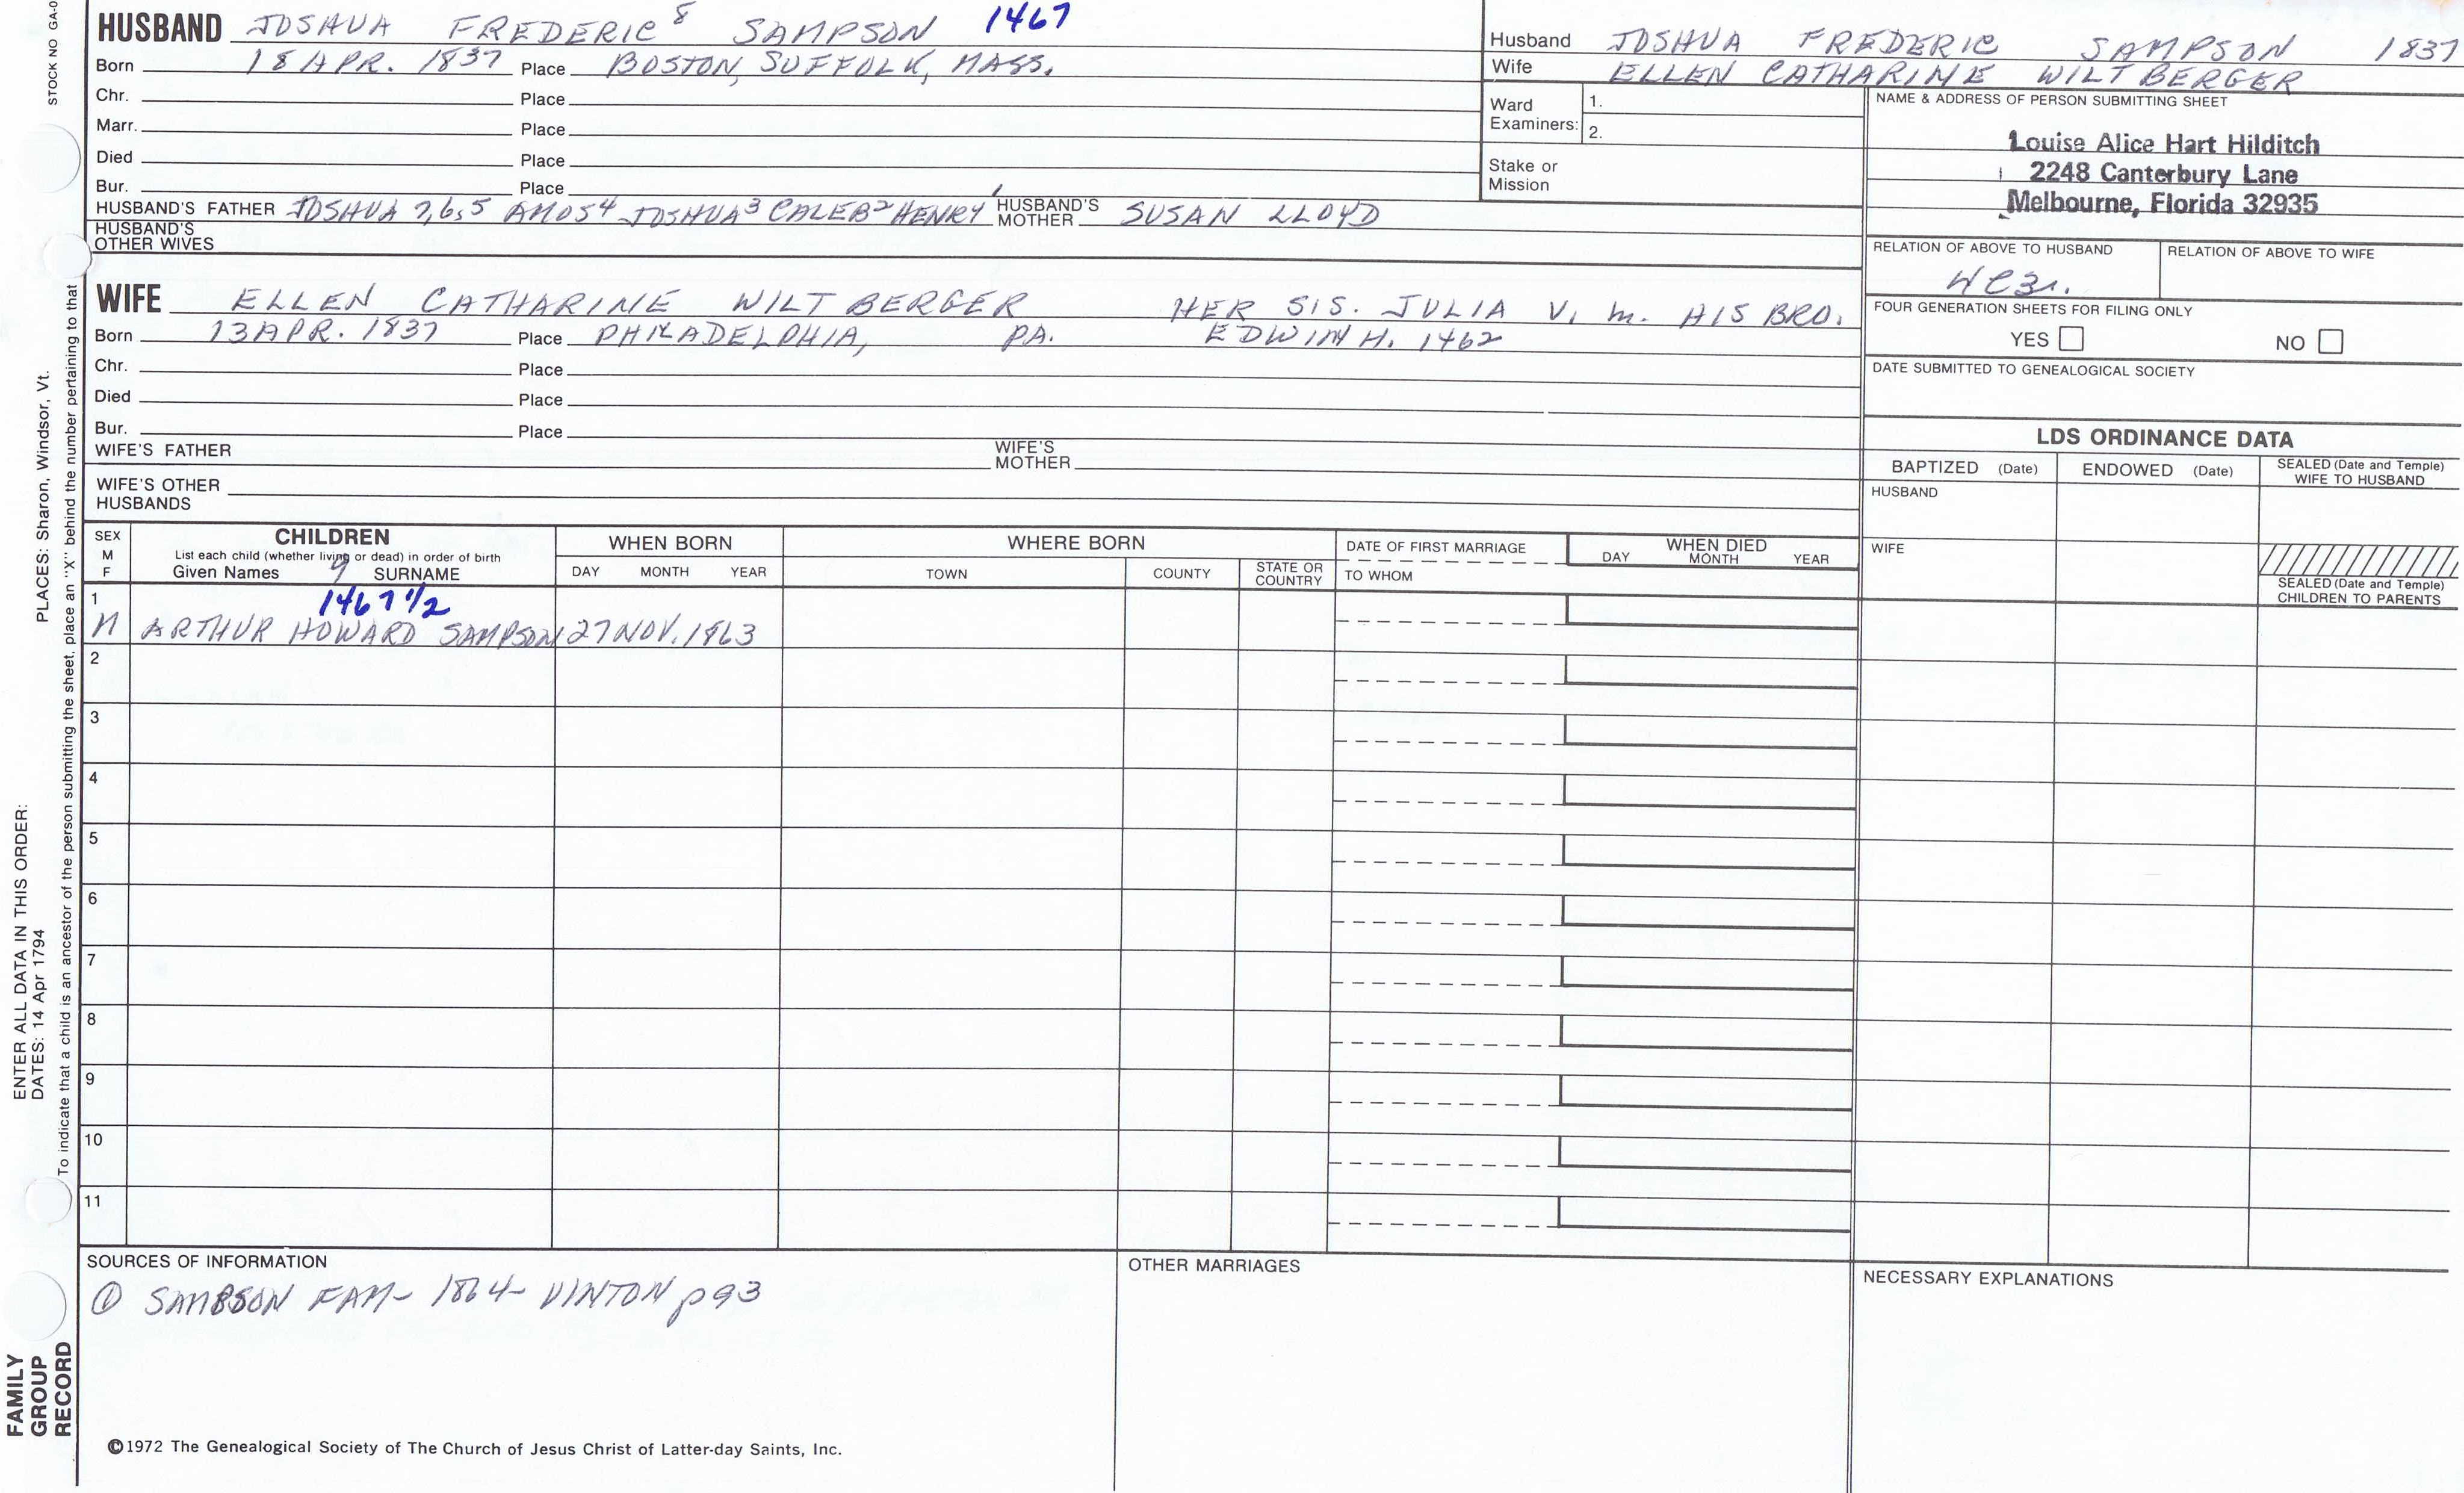 STOCK NO GA-0
HUSBAND JOSHUA FREDERIC 8 SAMPSON 1467
Born 18 APR. 1837 Place BOSTON, SUFFOLK, MASS.
Chr. Place
Marr. Place
Died Place
Bur. Place
HUSBAND'S FATHER JOSHUA 7,6,5 AMOS 4 JOSHUA 3 CALEB 2 HENRY 1 HUSBAND'S MOTHER SUSAN LLOYD
HUSBAND'S OTHER WIVES
Husband JOSHUA FREDERIC SAMPSON 1837
Wife ELLEN CATHARINE WILTBERGER
Ward Examiners: 1.
2.
Stake or Mission
NAME & ADDRESS OF PERSON SUBMITTING SHEET
Louise Alice Hart Hilditch
2248 Canterbury Lane
Melbourne, Florida 32935
RELATION OF ABOVE TO HUSBAND RELATION OF ABOVE TO WIFE
FOUR GENERATION SHEETS FOR FILING ONLY
YES NO
DATE SUBMITTED TO GENEALOGICAL SOCIETY
WIFE ELLEN CATHARINE WILTBERGER HER SIS. JULIA V. m. HIS BRO.
Born 13 APR. 1837 Place PHILADELPHIA, PA. EDWIN H. 1462
Chr. Place
Died Place
Bur. Place
WIFE'S FATHER WIFE'S MOTHER
WIFE'S OTHER HUSBANDS
LDS ORDINANCE DATA
BAPTIZED (Date) ENDOWED (Date) SEALED (Date and Temple) WIFE TO HUSBAND
HUSBAND
WIFE
SEALED (Date and Temple) CHILDREN TO PARENTS
SEX M F
CHILDREN
List each child (whether living or dead) in order of birth
Given Names 9 SURNAME
WHEN BORN
DAY MONTH YEAR
WHERE BORN
TOWN COUNTY STATE OR COUNTRY
DATE OF FIRST MARRIAGE
TO WHOM
WHEN DIED
DAY MONTH YEAR
1 1467 1/2
M ARTHUR HOWARD SAMPSON 27 NOV. 1863
2
3
4
5
6
7
8
9
10
11
SOURCES OF INFORMATION
① SAMPSON FAM- 1864- VINTON p93
OTHER MARRIAGES
NECESSARY EXPLANATIONS
©1972 The Genealogical Society of The Church of Jesus Christ of Latter-day Saints, Inc.
ENTER ALL DATA IN THIS ORDER:
DATES: 14 Apr 1794 PLACES: Sharon, Windsor, Vt.
To indicate that a child is an ancestor of the person submitting the sheet, place an "X" behind the number pertaining to that
FAMILY
GROUP
RECORD